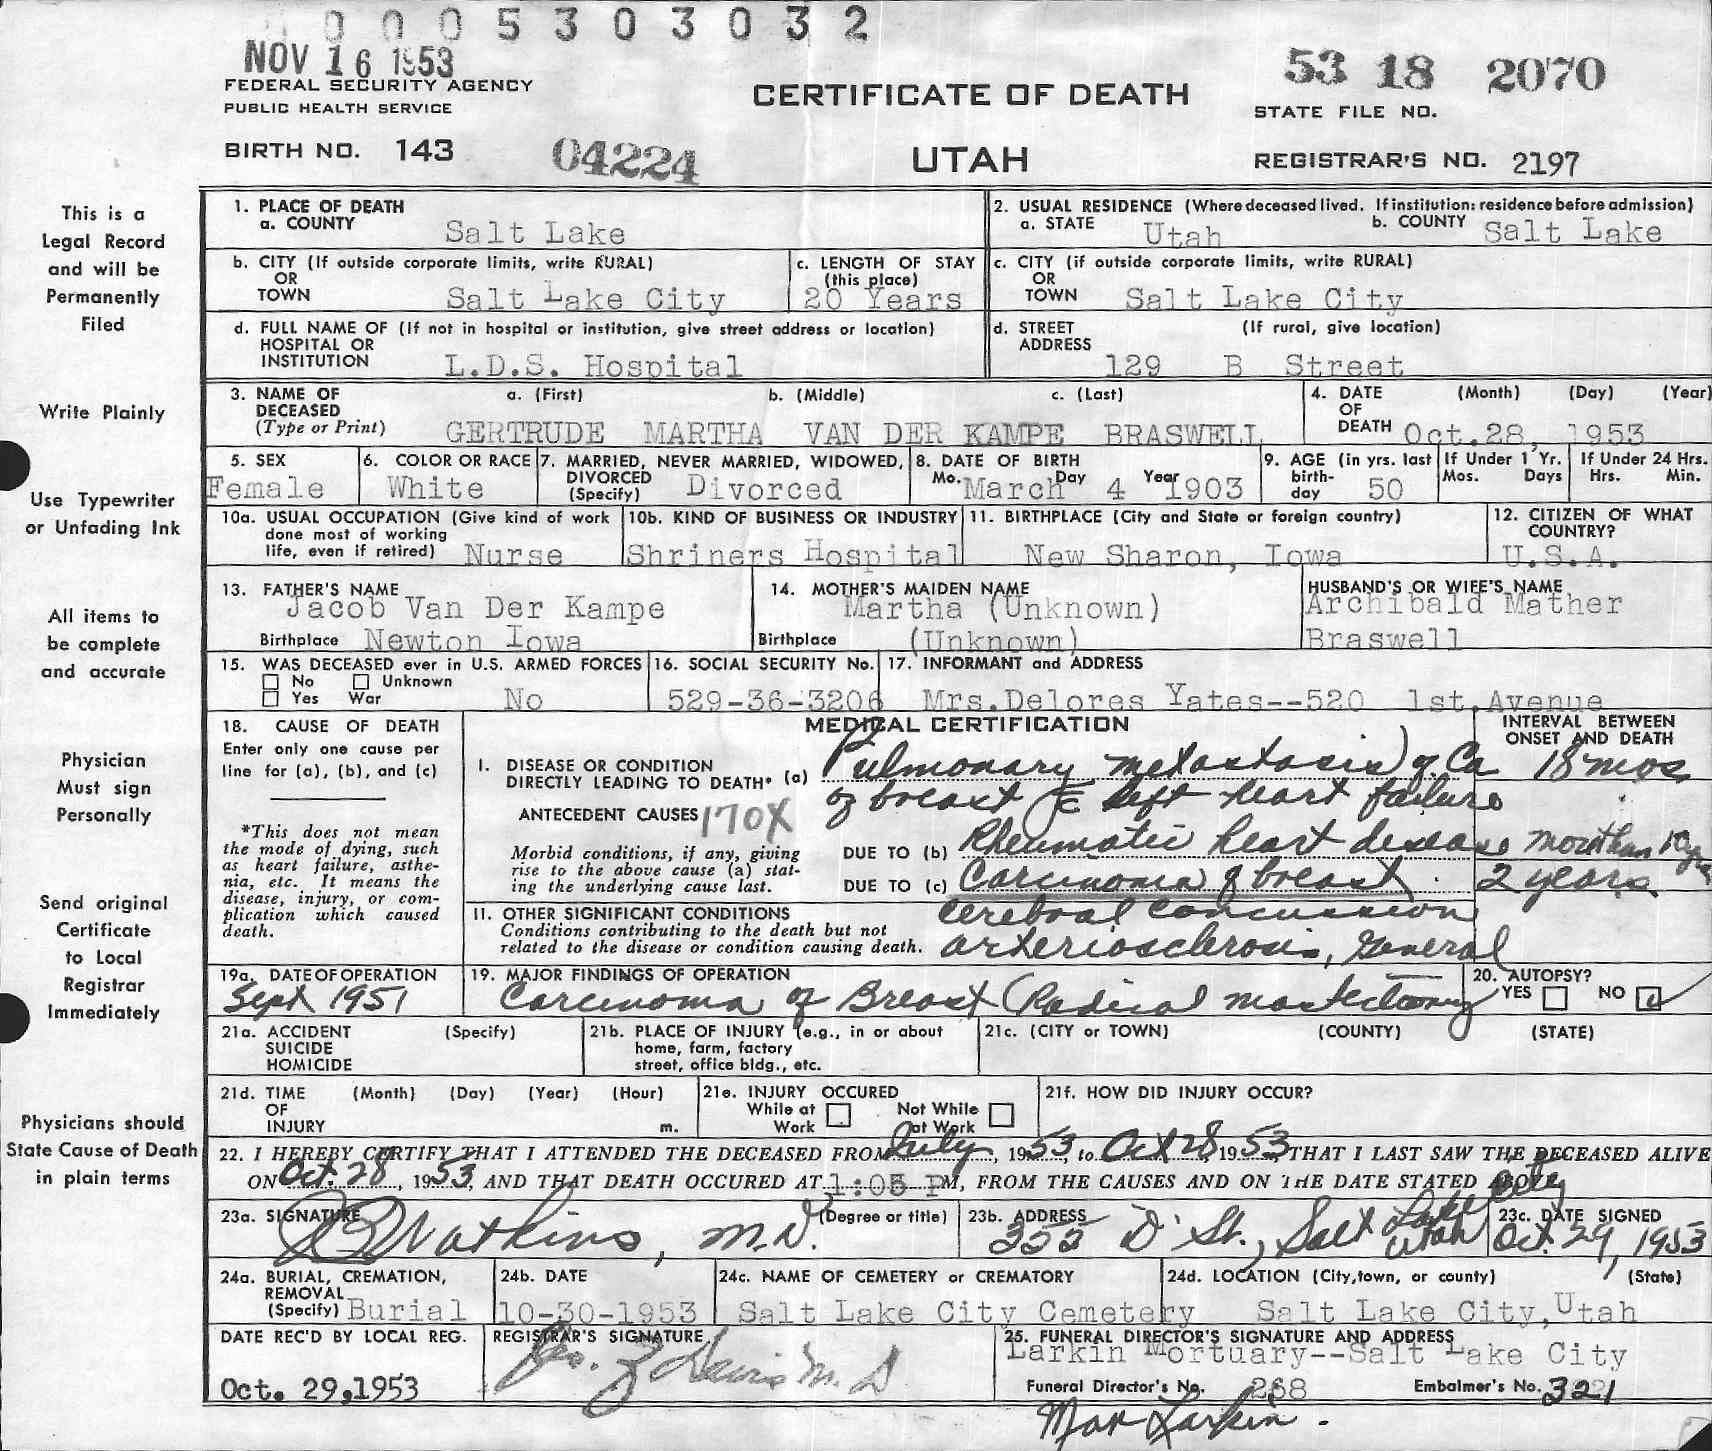 0 0 0 5 3 0 3 0 3 2
NOV 16 1953
FEDERAL SECURITY AGENCY
PUBLIC HEALTH SERVICE
CERTIFICATE OF DEATH
53 18 2070
STATE FILE NO.
BIRTH NO. 143 04224
UTAH
REGISTRAR'S NO. 2197
This is a
Legal Record
and will be
Permanently
Filed
Write Plainly
Use Typewriter
or Unfading Ink
All items to
be complete
and accurate
Physician
Must sign
Personally
Send original
Certificate
to Local
Registrar
Immediately
Physicians should
State Cause of Death
in plain terms
1. PLACE OF DEATH
a. COUNTY Salt Lake
2. USUAL RESIDENCE (Where deceased lived. If institution: residence before admission)
a. STATE Utah b. COUNTY Salt Lake
b. CITY (If outside corporate limits, write RURAL)
OR
TOWN Salt Lake City
c. LENGTH OF STAY
(this place)
20 Years
c. CITY (if outside corporate limits, write RURAL)
OR
TOWN Salt Lake City
d. FULL NAME OF (If not in hospital or institution, give street address or location)
HOSPITAL OR
INSTITUTION L.D.S. Hospital
d. STREET (If rural, give location)
ADDRESS 129 B Street
3. NAME OF a. (First) b. (Middle) c. (Last)
DECEASED
(Type or Print) GERTRUDE MARTHA VAN DER KAMPE BRASWELL
4. DATE (Month) (Day) (Year)
OF
DEATH Oct.28, 1953
5. SEX
Female
6. COLOR OR RACE
White
7. MARRIED, NEVER MARRIED, WIDOWED,
DIVORCED
(Specify) Divorced
8. DATE OF BIRTH
Mo. March Day 4 Year 1903
9. AGE (in yrs. last
birth-
day 50
If Under 1 Yr.
Mos. Days
If Under 24 Hrs.
Hrs. Min.
10a. USUAL OCCUPATION (Give kind of work
done most of working
life, even if retired) Nurse
10b. KIND OF BUSINESS OR INDUSTRY
Shriners Hospital
11. BIRTHPLACE (City and State or foreign country)
New Sharon, Iowa
12. CITIZEN OF WHAT
COUNTRY?
U.S.A.
13. FATHER'S NAME
Jacob Van Der Kampe
Birthplace Newton Iowa
14. MOTHER'S MAIDEN NAME
Martha (Unknown)
Birthplace (Unknown)
HUSBAND'S OR WIFE'S NAME
Archibald Mather
Braswell
15. WAS DECEASED ever in U.S. ARMED FORCES
No Unknown
Yes War No
16. SOCIAL SECURITY No.
529-36-3206
17. INFORMANT and ADDRESS
Mrs.Delores Yates--520 1st Avenue
18. CAUSE OF DEATH
Enter only one cause per
line for (a), (b), and (c)
*This does not mean
the mode of dying, such
as heart failure, asthe-
nia, etc. It means the
disease, injury, or com-
plication which caused
death.
MEDICAL CERTIFICATION
INTERVAL BETWEEN
ONSET AND DEATH
I. DISEASE OR CONDITION
DIRECTLY LEADING TO DEATH* (a) Pulmonary metastasis of Ca 18 mos
of breast c̄ left heart failure
ANTECEDENT CAUSES 170X
Morbid conditions, if any, giving
rise to the above cause (a) stat-
ing the underlying cause last.
DUE TO (b) Rheumatic heart disease more than 10 yrs
DUE TO (c) Carcinoma of breast 2 years
II. OTHER SIGNIFICANT CONDITIONS
Conditions contributing to the death but not
related to the disease or condition causing death.
Cerebral Concussion
arteriosclerosis, General
19a. DATE OF OPERATION
Sept 1951
19. MAJOR FINDINGS OF OPERATION
Carcinoma of Breast (Radical mastectomy
20. AUTOPSY?
YES NO
21a. ACCIDENT (Specify)
SUICIDE
HOMICIDE
21b. PLACE OF INJURY (e.g., in or about
home, farm, factory
street, office bldg., etc.
21c. (CITY or TOWN) (COUNTY) (STATE)
21d. TIME (Month) (Day) (Year) (Hour)
OF
INJURY m.
21e. INJURY OCCURED
While at Not While
Work at Work
21f. HOW DID INJURY OCCUR?
22. I HEREBY CERTIFY THAT I ATTENDED THE DECEASED FROM July, 1953, to Oct 28, 1953, THAT I LAST SAW THE DECEASED ALIVE
ON Oct. 28, 1953, AND THAT DEATH OCCURED AT 1:05 PM, FROM THE CAUSES AND ON THE DATE STATED ABOVE
23a. SIGNATURE (Degree or title)
Watkins, M.D.
23b. ADDRESS
'D' St., Salt Lake City
Utah
23c. DATE SIGNED
Oct. 29, 1953
24a. BURIAL, CREMATION,
REMOVAL
(Specify) Burial
24b. DATE
10-30-1953
24c. NAME OF CEMETERY or CREMATORY
Salt Lake City Cemetery
24d. LOCATION (City,town, or county) (State)
Salt Lake City,Utah
DATE REC'D BY LOCAL REG.
Oct. 29,1953
REGISTRAR'S SIGNATURE
M.D
25. FUNERAL DIRECTOR'S SIGNATURE AND ADDRESS
Larkin Mortuary--Salt Lake City
Funeral Director's No. 268 Embalmer's No. 321
Max Larkin.